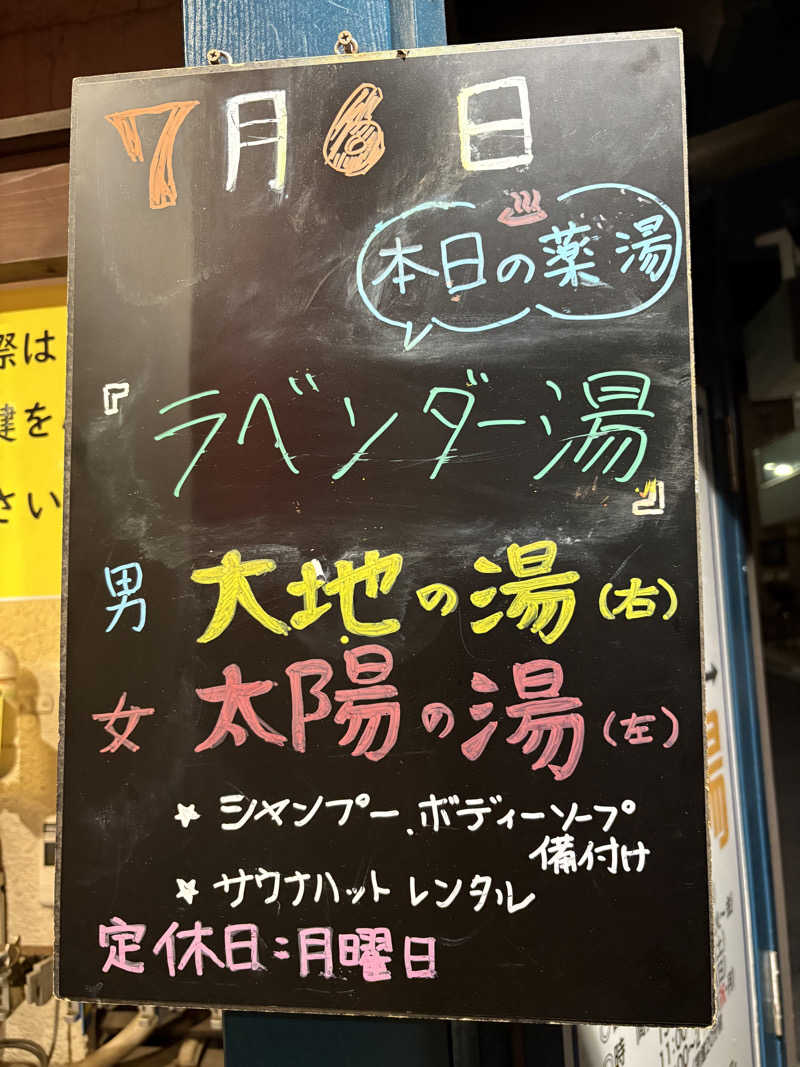 7月6日
♨
本日の薬湯
『ラベンダー湯』
男 大地の湯(右)
女 太陽の湯(左)
★ シャンプー、ボディーソープ
備付け
★ サウナハット レンタル
定休日:月曜日
際は
鍵を
さい